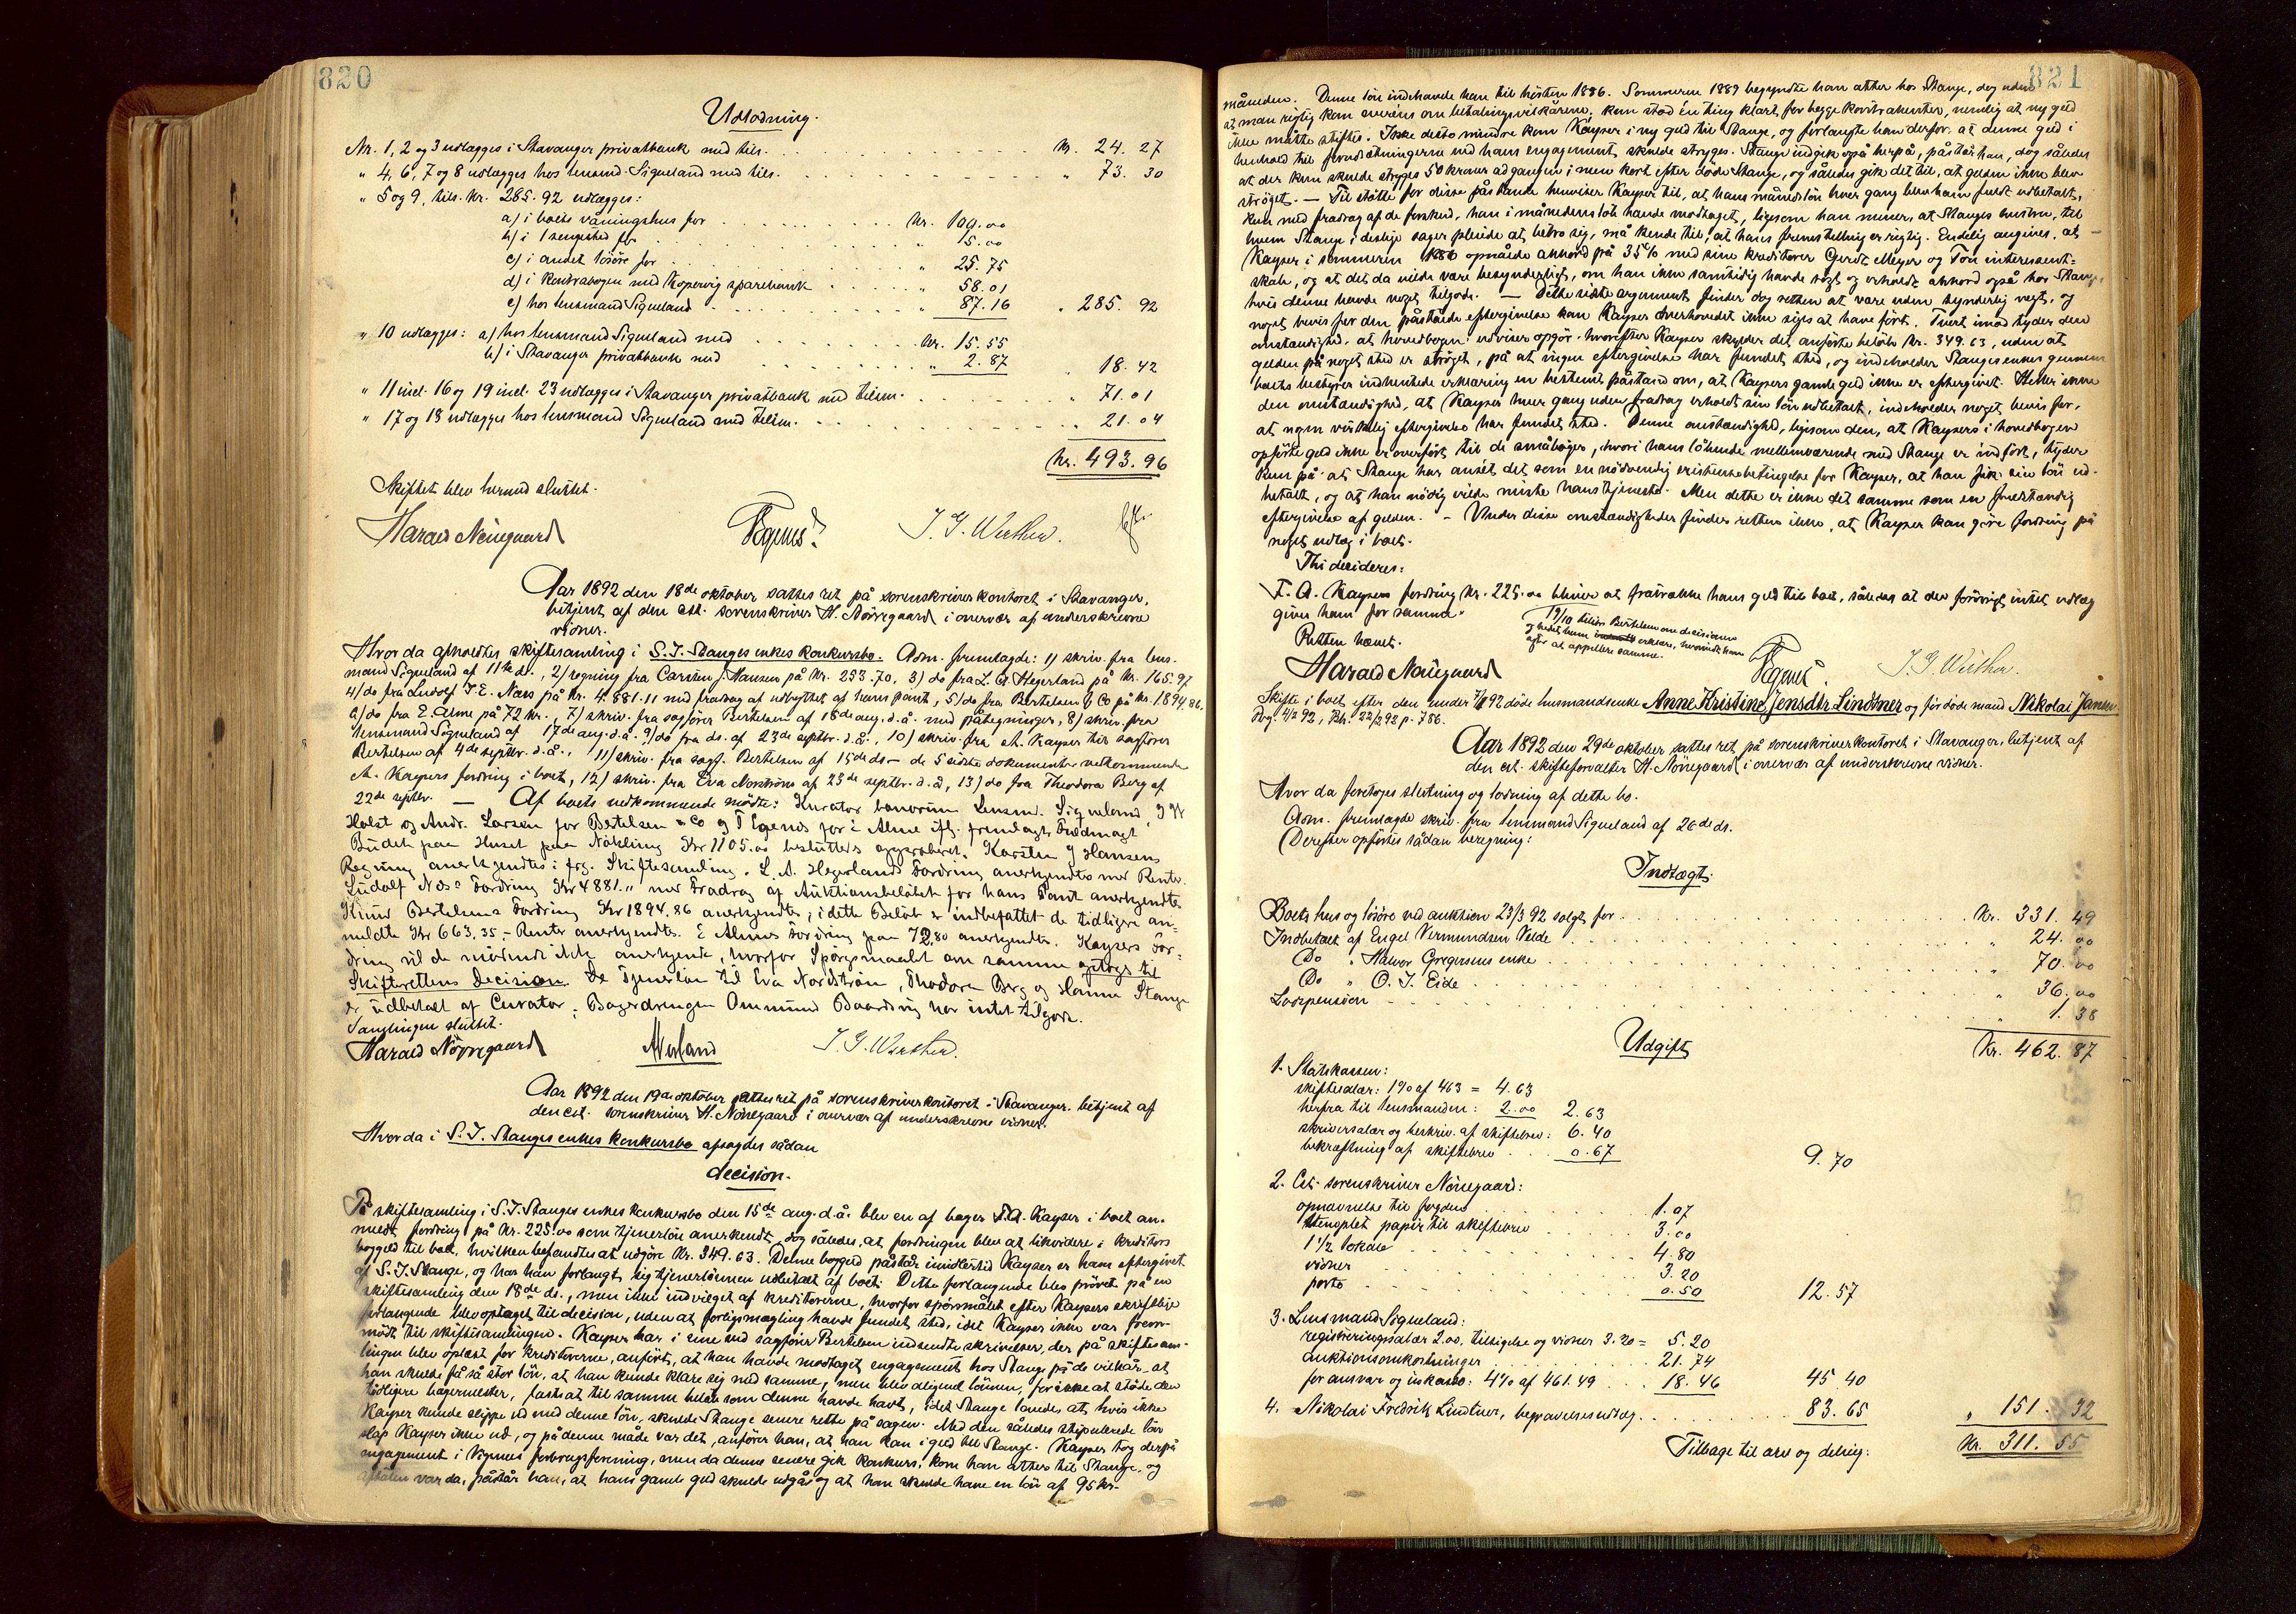 820
Udlodning.
Nr. 1, 2 og 3 udlægges i Stavanger privatbank med tils. Kr. 24. 27
" 4, 6, 7 og 8 udlægges hos lensmd. Sigueland med tils. " 73. 30
" 5 og 9, tils. kr. 285. 92 udlægges:
a) i boets våningshus for Kr. 100.00
b) i 1 sengested for " 15.00
c) i andet løsøre for " 25. 75
d) i Kontrabogen med Kopervig sparebank " 58.01
e) hos lensmand Sigueland " 87.16 " 285. 92
" 10 udlægges: a) hos lensmand Sigueland med Kr. 15.55
b) i Stavanger privatbank med " 2.87 " 18. 42
" 11 incl. 16 og 19 incl. 23 udlægges i Stavanger privatbank med tilsm. " 71. 01
" 17 og 18 udlægges hos lensmand Sigueland med tilsm. " 21. 04
Kr. 493. 96
Skiftet blev hermed sluttet.
Harald Nørregaard T Egenes. J. G. Wurthen.
Aar 1892 den 18de oktober sattes ret på sorenskriverkontoret i Stavanger,
betjent af den cst. sorenskriver H. Nørregaard i overvær af underskrevne
vidner.
Hvor da afholdtes skiftesamling i S. J. Stanges enkes konkursbo. Adm. fremlagde: 1) skriv. fra lens-
mand Sigueland af 11te ds., 2) regning fra Carsten J. Hansen på Kr. 253.70, 3) do fra L. A. Hegerland på Kr. 165.97
4) do fra Ludolf J. E. Næss på Kr. 4.881.11 med fradrag af udbyttet af hans pant, 5) do fra Bertelsen & Co på kr. 1894.86,
6) do fra E. Alme på 72 kr., 7) skriv. fra sagfører Bertelsen af 18de aug. d.å. med påtegninger, 8) skriv. fra
lensmand Sigueland af 17de aug. d.å. 9) do fra ds. af 23de septbr. d.å., 10) skriv. fra A. Kayser til sagfører
Bertelsen af 4de septbr. d.å., 11) skriv. fra sagf. Bertelsen af 15de ds – de 5 sidste dokumenter vedkommende
A. Kaysers fordring i boet, 12) skriv. fra Eva Nordstrøm af 23de septbr. d.å, 13) do fra Theodora Berg af
22de septbr. — Af boets vedkommende mødte: Kurator bonorum Lensmd. Sigueland, J W
Holst og Andr. Larsen for Bertelsen & Co og T Egenes for E Alme iflg. fremlagt Fuldmagt
Budet paa Huset paa Nøhling Kr 1105.00 besluttedes approberet. Karsten J Hansens
Regning anerkjendtes i frg. Skiftesamling. L. A. Hegerlands Fordring anerkjendtes med Renter.
Ludolf Næs's Fordring Kr 4881." med Fradrag af Auktionsbeløbet for hans Pant anerkjendtes
Knud Bertelsens Fordring Kr 1894.86 anerkjendtes, i dette Beløb er indbefattet de tidligere an-
meldte Kr 663,35.- Renter anerkjendtes. E Almes Fordring paa 72,80 anerkjendtes. Kaysers For-
dring vil de mødende ikke anerkjende, hvorfor Spørgsmaalet om samme optoges til
Skifterettens Decision. De Tjenerløn til Eva Nordstrøm, Theodora Berg og Hanna Stange
er udbetalt af Curator. Bagerdrengen Ommund Baardsen har intet tilgode.
Samlingen sluttet.
Harald Nørregaard J. G. Wurthen.
Aar 1892 den 19de oktober sattes ret på sorenskriverkontoret i Stavanger, betjent af
den cst. sorenskriver H. Nørregaard i overvær af underskrevne vidner.
Hvor da i S. J. Stanges enkes konkursbo afsagdes sådan
decision.
På skiftesamling i S. J. Stanges enkes konkursbo den 15de aug. d.å. blev en af bager F. A. Kayser i boet an-
meldt fordring på Kr. 225.00 som tjenerløn anerkendt, dog således, at fordringen blev at likvidere i kreditors
boggæld til boet, hvilken befandtes at udgjøre Kr. 349.63. Denne boggæld påstår imidlertid Kayser er ham eftergivet
af S. J. Stange, og har han forlangt sig tjenerlønnen udbetalt af boet. Dette forlangende blev prøvet på en
skiftesamling den 18de ds., men ikke indvilget af kreditorerne, hvorfor spørsmålet efter Kaysers skriftlige
forlangende blev optaget til decision, uden at forligsmægling havde fundet sted, idet Kayser ikke var frem-
mødt til skiftesamlingen. Kayser har i sine ved sagfører Bertelsen indsendte skrivelser, der på skiftesam-
lingen blev oplæst for kreditorerne, anført, at han havde modtaget engagement hos Stange på de vilkår, at
han skulde få så stor løn, at han kunde klare sig med samme, men blev alligevel lønnen, for ikke at støde den
tidligere bagermester, fastsat til samme beløb som denne havde havt, idet Stange lovedes at, hvis ikke
Kayser kunde slippe ud med denne løn, skulde Stange senere rette på sagen. Med den således stipulerede løn
slap Kayser ikke ud, og på denne måde var det, anfører han, at han kan i gæld til Stange. Kayser tog derpå
engagement i Vignes forbrugsforening, men da denne senere gik konkurs, kom han atter til Stange, og
aftalen var da, påstår han, at hans gamle gæld skulde udgå og at han skulde have en løn af 95 kr.
821
måneden. Denne løn indehavde han til høsten 1886. Sommeren 1889 begyndte han atter hos Stange, dog uden
at man rigtig kom overens om betalingsvilkårene; kun stod én ting klart for begge kontrahenter, nemlig at ny gæld
ikke måtte stiftes. Ikke desto mindre kom Kayser i ny gæld til Stange, og forlangte han derfor, at denne gæld i
henhold til forudsætningerne ved hans engagement skulde stryges. Stange indgik også herpå, påstår han, dog således
at der kun skulde stryges 50 kroner ad gangen; men kort efter døde Stange, og således gik det til, at gælden ikke blev
strøget. — Til støtte for disse påstande henviser Kayser til, at hans månedsløn hver gang blev ham fuldt udbetalt,
kun med fradrag af de forskud, han i månedens løb havde modtaget, ligesom han mener, at Stanges hustru, til
hvem Stange i deslige sager pleiede at betro sig, må kende til, at hans fremstilling er rigtig. Endelig angives, at
Kayser i sommeren 1886 opnåede akkord på 35% med sine kreditorer Gerdt Meyer og Tou interessent-
skab, og at det da vilde være besynderligt, om han ikke samtidig havde søgt og erholdt akkord også hos Stange,
hvis denne havde noget tilgode. — Dette sidste argument finder dog retten at være uden synderlig vegt, og
noget bevis for den påståede eftergivelse kan Kayser overhovedet ikke siges at have ført. Tvert imod tyder den
omstændighed, at hovedbogen udviser opgør, hvorefter Kayser skylder det anførte beløb Kr. 349.63, uden at
gælden på noget sted er strøget, på at ingen eftergivelse har fundet sted, og indeholder Stanges enkes gennem
boets bestyrer indhentede erklæring en bestemt påstand om, at Kaysers gamle gæld ikke er eftergivet. Heller ikke
den omstændighed, at Kayser hver gang uden fradrag erholdt sin løn udbetalt, indeholder noget bevis for,
at nogen virkelig eftergivelse har fundet sted. Denne omstændighed, ligesom den, at Kaysers i hovedbogen
opførte gæld ikke er overført til de småbøger, hvori hans løbende mellemværende med Stange er indført, tyder
kun på at Stange har anset det som en nødvendig existensbetingelse for Kayser, at han fik sin løn ud-
betalt, og at han nødig vilde miste hans tjeneste. Men dette er ikke det samme som en fuldstændig
eftergivelse af gælden. – Under disse omstændigheder finder retten ikke, at Kayser kan gøre fordring på
noget udlæg i boet.
Thi decideres:
F. A. Kaysers fordring Kr. 225.00 bliver at fratrække hans gæld til boet, således at der forøvrigt intet udlæg
gives ham for samme.
Retten hævet.
19/10 tilskr. Bertelsen om decisionen
og bedet ham erklære, hvorvidt han
agter at appellere samme.
Harald Nørregaard T Egenes. J. G. Wurthen.
Skifte i boet efter den under 7/1 92 døde husmandsenke Anne Kristine Jensdtr Lindtner og før døde mand Nikolai Jansen.
Reg. 4/2 92, Bh. 22/2 92 p. 786.
Aar 1892 den 29de oktober sattes ret på sorenskriverkontoret i Stavanger, betjent af
den cst. skifteforvalter H. Nørregaard i overvær af underskrevne vidner.
Hvor da foretoges slutning og lodning af dette bo.
Adm. fremlagde skriv. fra lensmand Sigueland af 26de ds.
Derefter opførtes sådan beregning:
Indtægt.
Boets hus og løsøre ved auktion 23/3 92 solgt for Kr. 331. 49
Indbetalt af Engel Vermundsen Velde " 24. 00
Do " Halvor Gregersens enke " 70. 00
Do " O. J. Eide " 36. 00
Lodspension " 1. 38
Kr. 462. 87
Udgift
1. Statskassen:
skiftesalær: 1% af 463 = 4.63
herfra til lensmanden: 2.00 2.63
skriversalær og beskriv. af skiftebrev: 6.40
bekræftning af skiftebrev 0.67 9. 70
2. Cst. sorenskriver Nørregaard:
opnævnelse til fogden 1.07
stemplet papir til skiftebrev 3.00
1 1/2 lokale 4.80
vidner 3.20
porto 0.50 12. 57
3. Lensmand Sigueland:
registreringssalær 2.00, tilsigelse og vidner 3.20 = 5.20
auktionsomkostninger 21. 74
for ansvar og inkasso: 4% af 461.49 18. 46 45 40
4. Nikolai Fredrik Lindtner, begravelsesudlæg 83. 65 " 151. 32
Tilbage til arv og deling: Kr. 311. 55